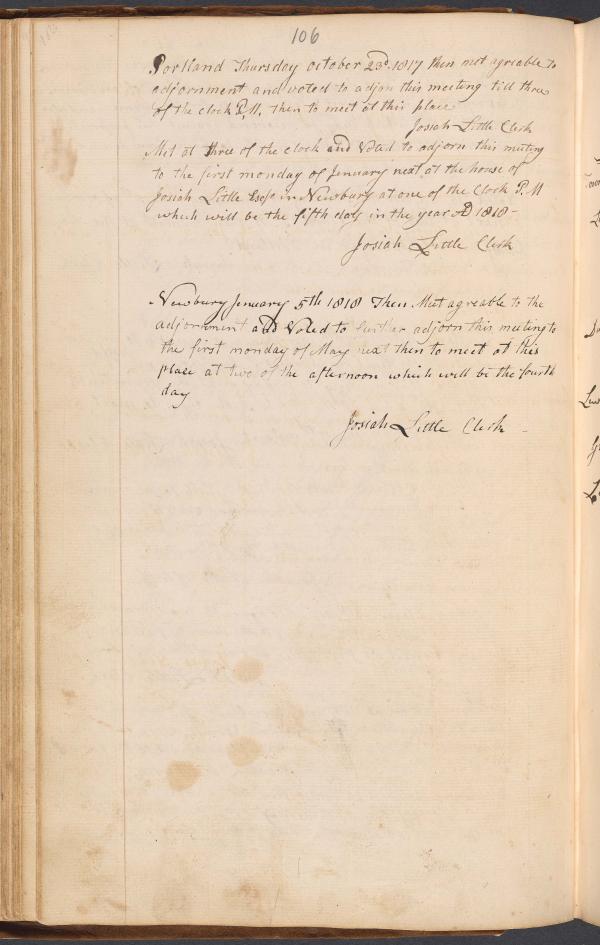 106
Portland Thursday october 23d. 1817 then met agreable to
adjornment and voted to adjorn this meeting till three
of the clock P.M. then to meet at this place
Josiah Little Clerk
Met at three of the clock and Voted to adjorn this meeting
to the first monday of Jenuary next at the house of
Josiah Little Esqr in Newbury at one of the Clock P.M
which will be the fifth day in the year AD 1818 -
Josiah Little Clerk
Newbury Jenuary 5th 1818 Then Met agreable to the
adjornment and Voted to further adjorn this meeting to
the first monday of May next then to meet at this
place at two of the afternoon which will be the fourth
day
Josiah Little Clerk -